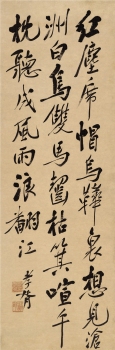 紅塵席帽烏鞾裏想見滄
洲白鳥雙馬齧枯萁喧午
枕聽成風雨浪翻江
孝胥